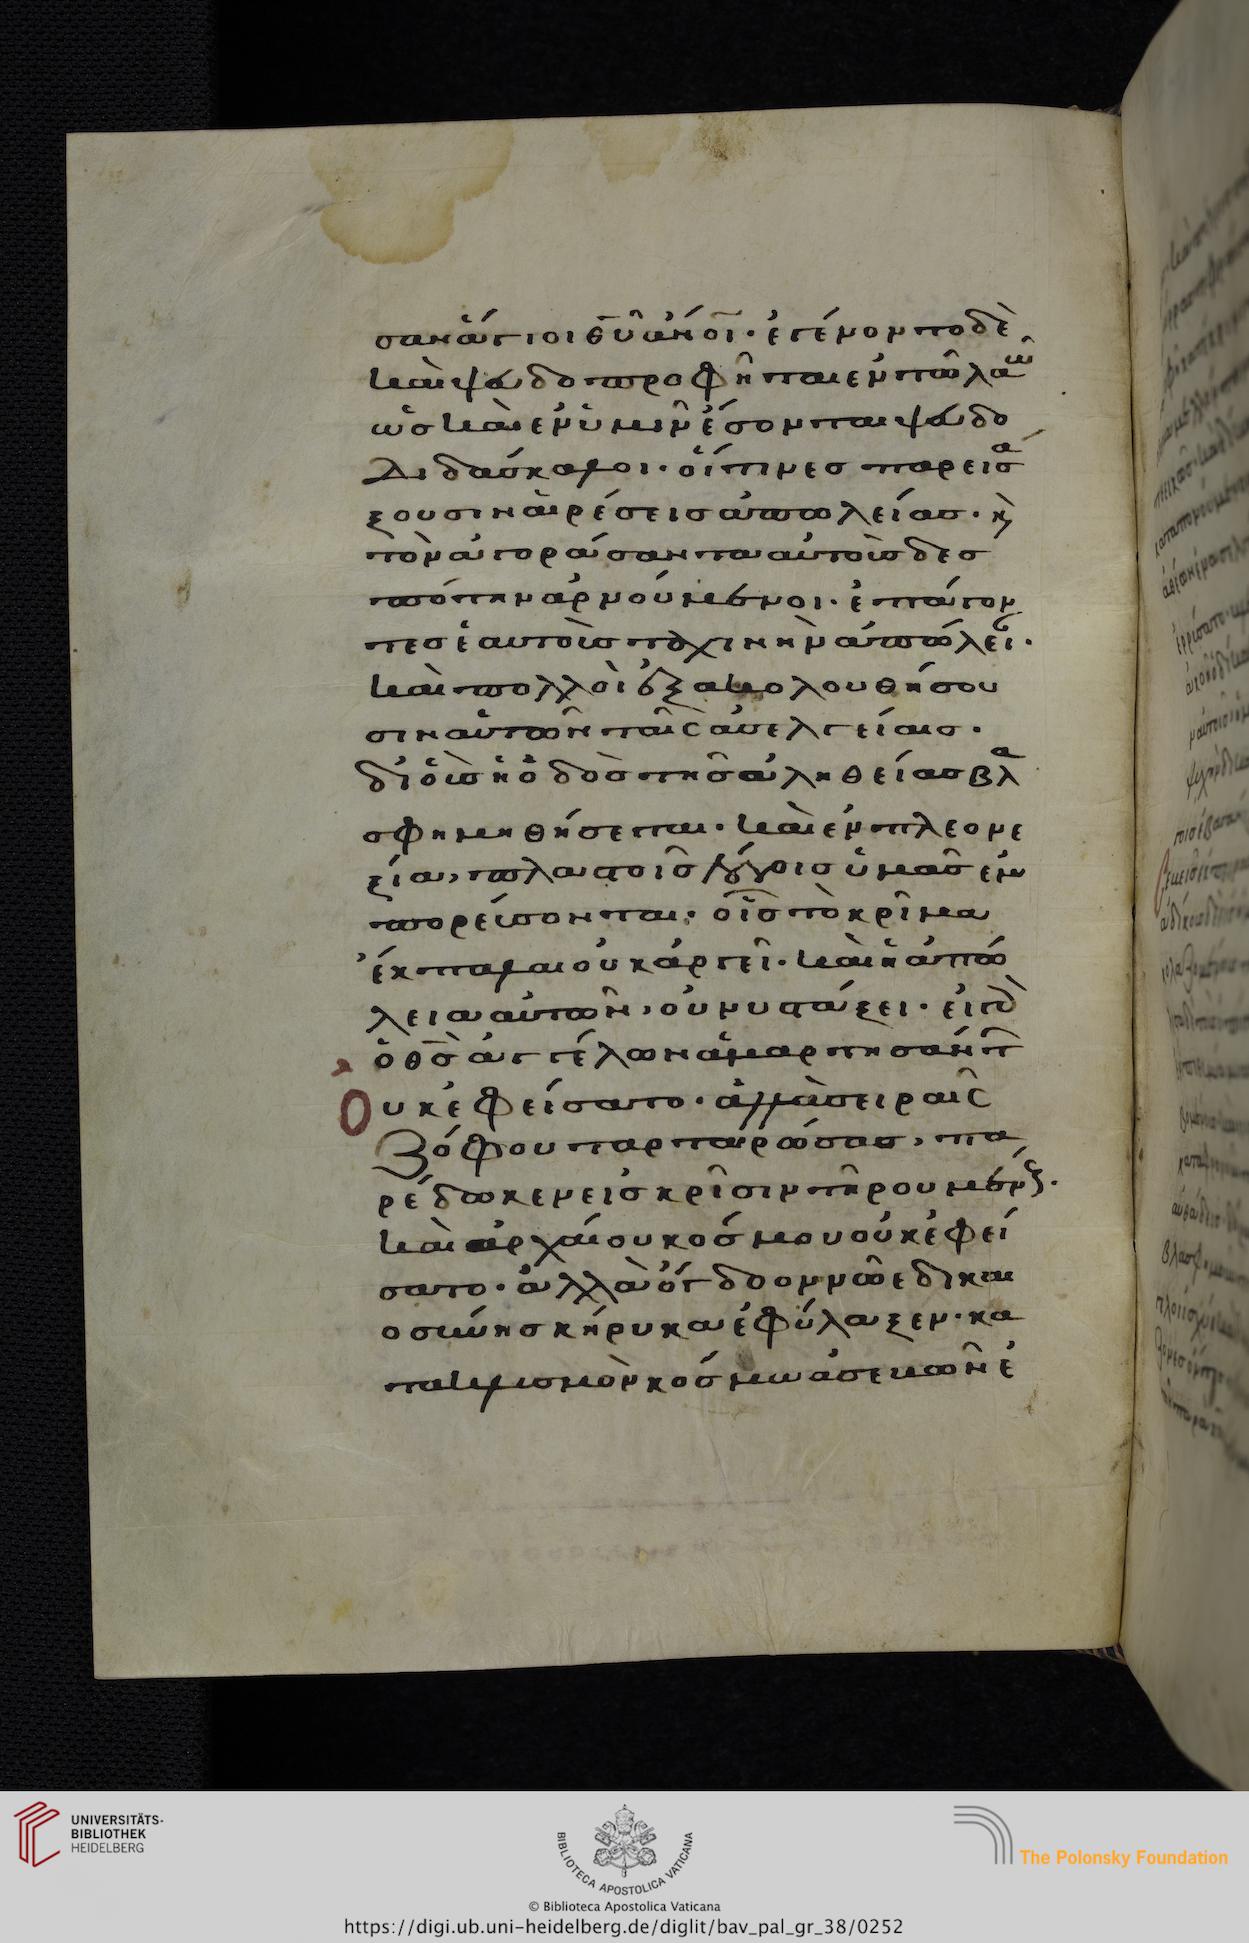 σαν ἅγιοι θῦ ἄνοι· ἐγένοντο δὲ
καὶ ψευδοπροφῆται ἐν τῶ λαῶ
ὡς καὶ ἐν ὑμῖν ἔσονται ψευδο
διδάσκαλοι· οἵτινες παρεισά
ξουσιν αἱρέσεις ἀπωλείας· κ
τὸν ἀγοράσαντα αὐτοὺς δεσ
πότην ἀρνούμενοι· ἐπάγον
τες ἑαυτοῖς ταχινὴν ἀπώλει·
καὶ πολλοὶ ἐξακολουθήσου
σιν αὐτῶν ταῖς ἀσελγείαις·
δι οὓς ἡ ὁδὸς τῆς ἀληθείας βλα
σφημηθήσεται· καὶ ἐν πλεονε
ξία, πλαστοῖς λόγοις ὑμᾶς ἐμ
πορεύσονται· οἷς τὸ κρῖμα
ἔκπαλαι οὐκ ἀργεῖ· καὶ ἡ ἀπώ
λεια αὐτῶν, οὐ νυστάξει· εἰ γὰρ
ὁ θς ἀγγέλων ἁμαρτησάντ
Οὐκ ἐφείσατο· ἀλλὰ σειραῖς
ζόφου ταρταρώσας, πα
ρέδωκεν εἰς κρῖσιν τηρουμένς·
καὶ ἀρχαίου κόσμου οὐκ ἐφεί
σατο· ἀλλὰ ὄγδοον νῶε δικαι
οσύνης κήρυκα ἐφύλαξεν· κα
τακλυσμὸν κόσμω ἀσεβῶν ἐ
UNIVERSITÄTS-
BIBLIOTHEK
HEIDELBERG
BIBLIOTECA APOSTOLICA VATICANA
The Polonsky Foundation
© Biblioteca Apostolica Vaticana
https://digi.ub.uni-heidelberg.de/diglit/bav_pal_gr_38/0252